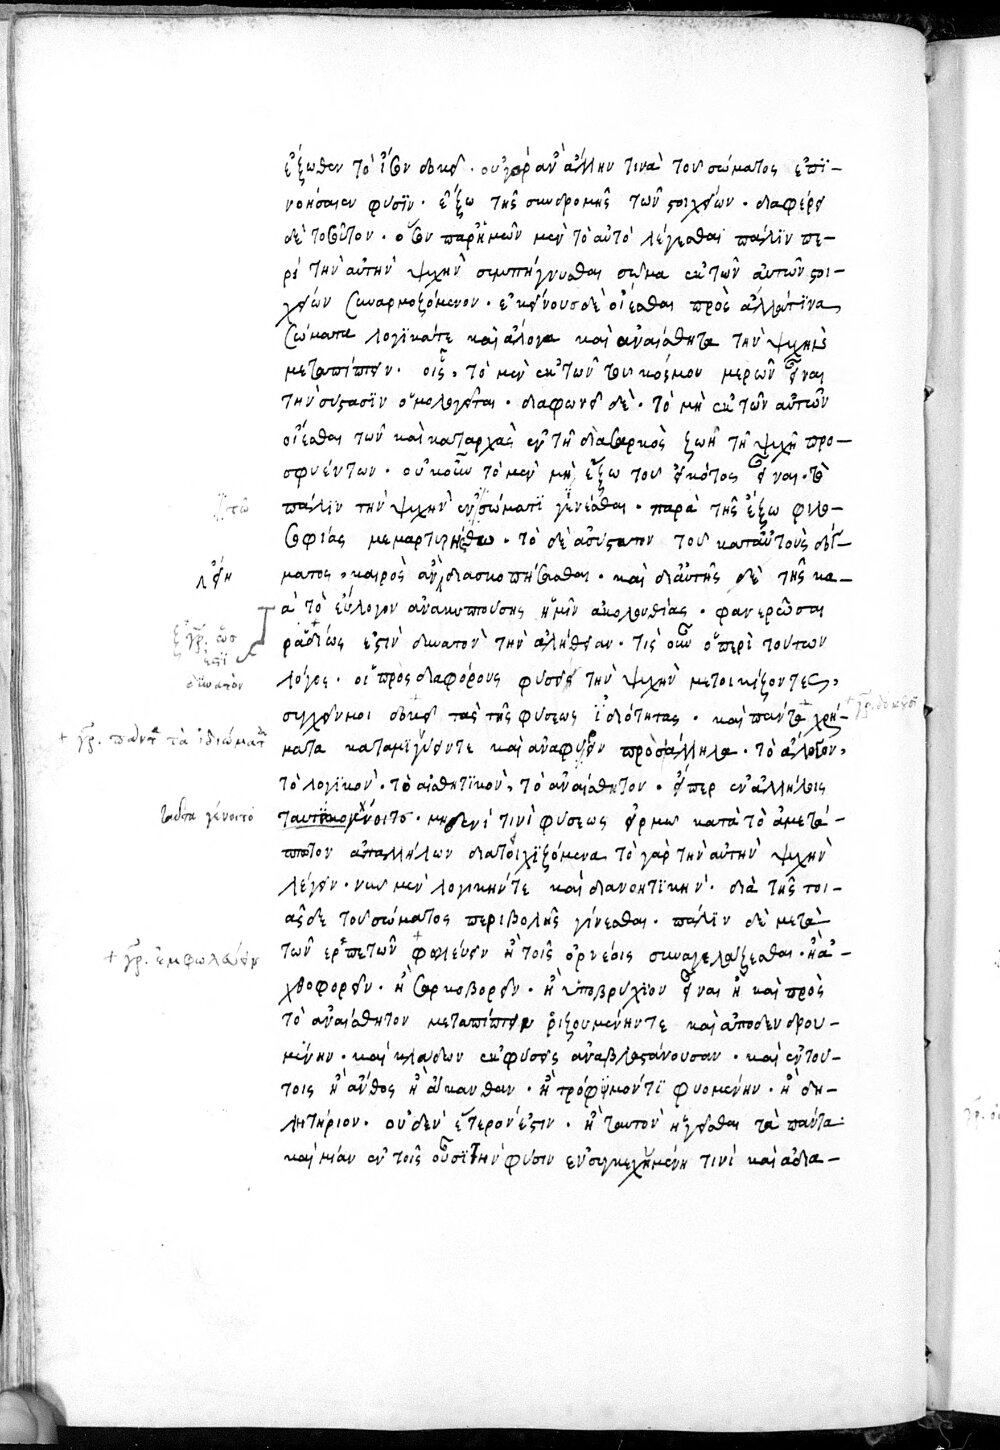 ἔξωθεν τὸ ἴσον δοκεῖ · οὐ γὰρ ἂν ἄλλην τινὰ τοῦ σώματος ἐπϊ-
νοήσαιεν φύσϊν · ἔξω τῆς συνδρομῆς τῶν στοιχείων · διαφέρει
δὲ τοσοῦτον · ὅσον παρ' ἡμῶν μὲν τὸ αὐτὸ λέγεσθαι πάλϊν πε-
ρὶ τὴν αὐτὴν ψυχὴν συμπήγνυσθαι σῶμα ἐκ τῶν αὐτῶν στοι-
χείων συναρμοζόμενον · ἐκείνους δὲ οἴεσθαι πρὸς ἄλλά τϊνα
σώματα λογϊκά τε καὶ ἄλογα καὶ ἀναίσθητα τὴν ψυχὴν
μεταπίπτειν · οἷς, τὸ μὲν ἐκ τῶν τοῦ κόσμου μερῶν εἶναι
τὴν σύστασϊν ὁμολογεῖται · διαφωνεῖ δὲ · τὸ μὴ ἐκ τῶν αὐτῶν
οἴεσθαι τῶν καὶ καταρχὰς ἐν τῇ διὰ σαρκὸς ζωῇ τῇ ψυχῇ προ-
σφυέντων · οὐκοῦν τὸ μὲν μὴ ἔξω τοῦ εἰκότος εἶναι · τὸ
πάλϊν τὴν ψυχὴν ἐν σώματϊ γενέσθαι · παρὰ τῆς ἔξω φιλο-
σοφίας μεμαρτυρήσθω · τὸ δὲ ἀσύστατον τοῦ κατ' αὐτοὺς δόγ-
ματος, καιρὸς ἂν διασκοπήσασθαι · καὶ δι' αὐτῆς δὲ τῆς κα-
τὰ τὸ εὔλογον ἀνακυπτούσης ἡμῖν ἀκολουθίας · φανερῶσαι
ῥαδίως ἐστὶν δυνατὸν τὴν ἀλήθειαν · τίς οὖν ὁ περὶ τούτων
λόγος · οἱ πρὸς διαφόρους φύσεις τὴν ψυχὴν μετοικίζοντες,
συγχέειν μοι δοκεῖ τὰς τῆς φύσεως ἰδιότητας · καὶ πάντα χρή-
ματα καταμϊγνύοντε καὶ ἀναφύρειν πρὸς ἄλληλα · τὸ ἄλογον,
τὸ λογϊκὸν · τὸ αἰσθητϊκὸν, τὸ ἀναίσθητον · εἴπερ ἐν ἀλλήλοις
ταυτϊκογένοιτο · μηδενί τινι φύσεως εἱρμῷ κατὰ τὸ ἀμετά-
πτωτον ἀπ' ἀλλήλων διατοιχϊζόμενα τὸ γὰρ τὴν αὐτὴν ψυχὴν
λέγειν · νῦν μὲν λογικήν τε καὶ διανοητϊκὴν · διὰ τῆς τοι-
ᾶς δε τοῦ σώματος περιβολῆς γίνεσθαι · πάλϊν δὲ μετὰ
τῶν ἑρπετῶν φωλεύειν ἢ τοῖς ὀρνέοις συναγελάζεσθαι · ἢ ἀ-
χθοφορεῖν · ἢ σαρκοβορεῖν · ἢ ὑποβρύχϊον εἶναι ἢ καὶ πρὸς
τὸ ἀναίσθητον μεταπίπτειν ῥιζουμένην τε καὶ ἀποδενδρου-
μένην · καὶ κλάδων ἐκφύσεις ἀναβλαστάνουσαν · καὶ ἐν τού-
τοις ἢ ἄνθος ἢ ἄκανθαν · ἢ τρόφϊμόν τϊ φυομένην · ἢ δη-
λητήριον · οὐδὲν ἕτερον ἐστιν · ἢ ταυτὸν ἡγεῖσθαι τὰ πάντα
καὶ μίαν ἐν τοῖς οὖσϊ τὴν φύσιν ἐν συγκεχυμένῃ τινὶ καὶ ἀδια-
τῶ
λέγῃ
γρ. ὡς
ἐπὶ
δυνατὸν
+ γρ. πάντα τὰ ἰδιώματα
ταῦτα γένοιτο
+ γρ. ἐμφωλεύειν
+ γρ. δοκοῦσι